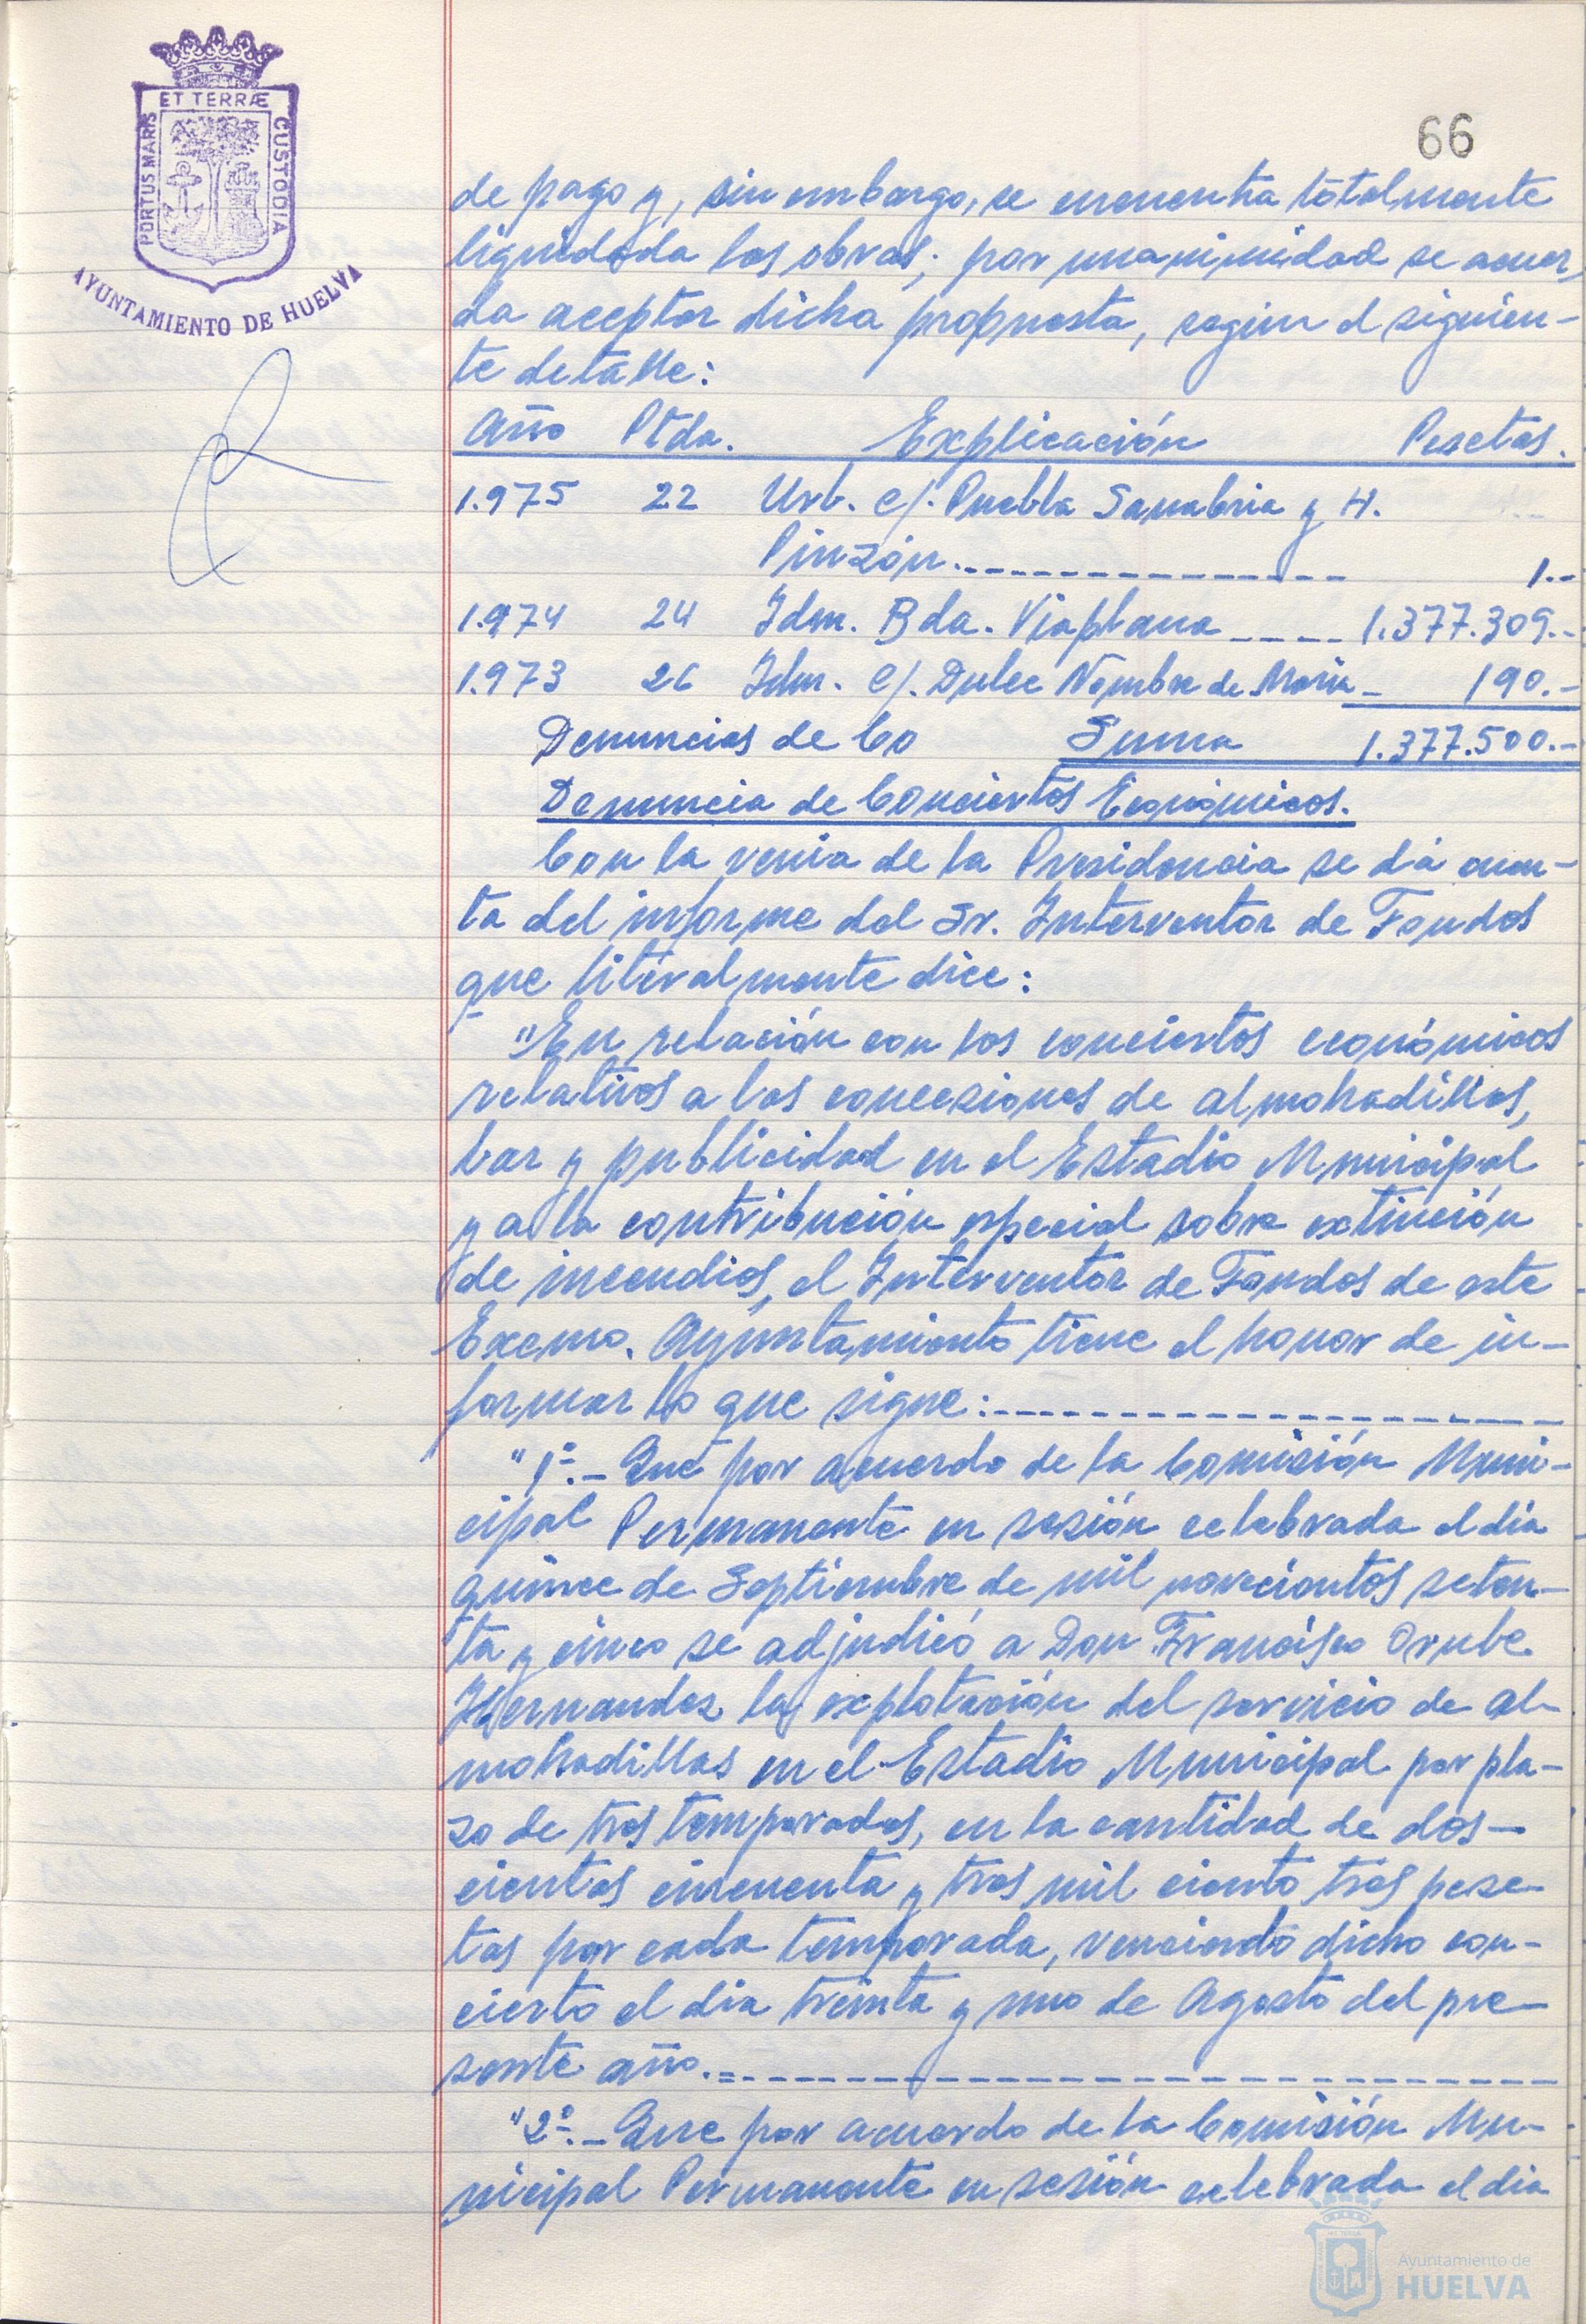 ET TERRÆ
PORTUS MARIS
CUSTODIA
AYUNTAMIENTO DE HUELVA
66
de pago y, sin embargo, se encuentra totalmente
liquidada las obras; por unanimidad se acuer-
da aceptar dicha propuesta, según el siguien-
te detalle:
Año Ptda. Explicación Pesetas.
1.975 22 Urb. c/. Puebla Sanabria y H.
Pinzón.---------------- 1.--
1.974 24 Idem. Bda. Viaplana ---- 1.377.309.--
1.973 26 Idm. c/. Dulce Nombre de María- 190.-
Denuncias de Co Suma 1.377.500.-
Denuncia de Conciertos Económicos.
Con la venia de la Presidencia se dá cuen-
ta del informe del Sr. Interventor de Fondos
que literalmente dice:
"En relación con los conciertos económicos
relativos a las concesiones de almohadillas,
bar y publicidad en el Estadio Municipal
y a la contribución especial sobre extinción
de incendios, el Interventor de Fondos de este
Excmo. Ayuntamiento tiene el honor de in-
formar lo que sigue:-------------------
"1º.- Que por acuerdo de la Comisión Muni-
cipal Permanente en sesión celebrada el día
quince de Septiembre de mil novecientos seten-
ta y cinco se adjudicó a Don Francisco Orube
Hernandez la explotación del servicio de al-
mohadillas en el Estadio Municipal por pla-
zo de tres temporadas, en la cantidad de dos-
cientas cincuenta y tres mil ciento tres pese-
tas por cada temporada, venciendo dicho con-
cierto el día treinta y uno de Agosto del pre-
sente año.-----------------------------
"2º.- Que por acuerdo de la Comisión Mu-
nicipal Permanente en sesión celebrada el día
Ayuntamiento de
HUELVA